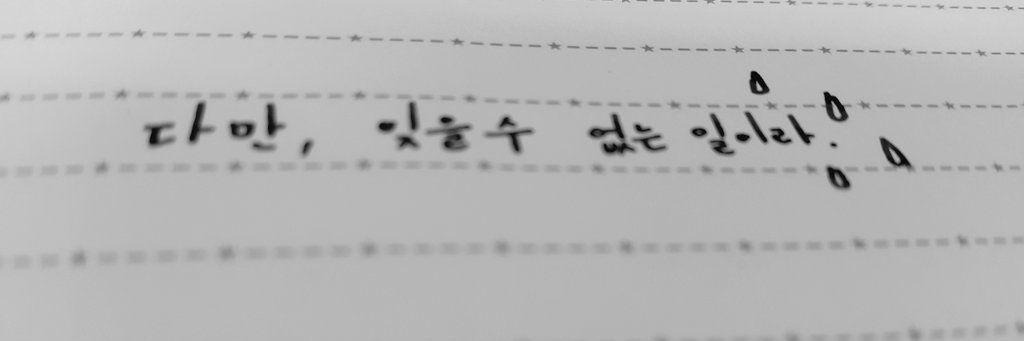 다만, 잊을수 없는 일이라.